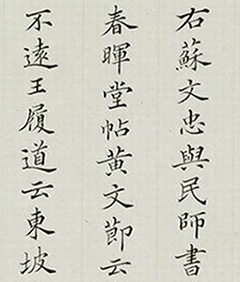 右蘇文忠與民師書
春暉堂帖黃文節云
不遠王履道云東坡